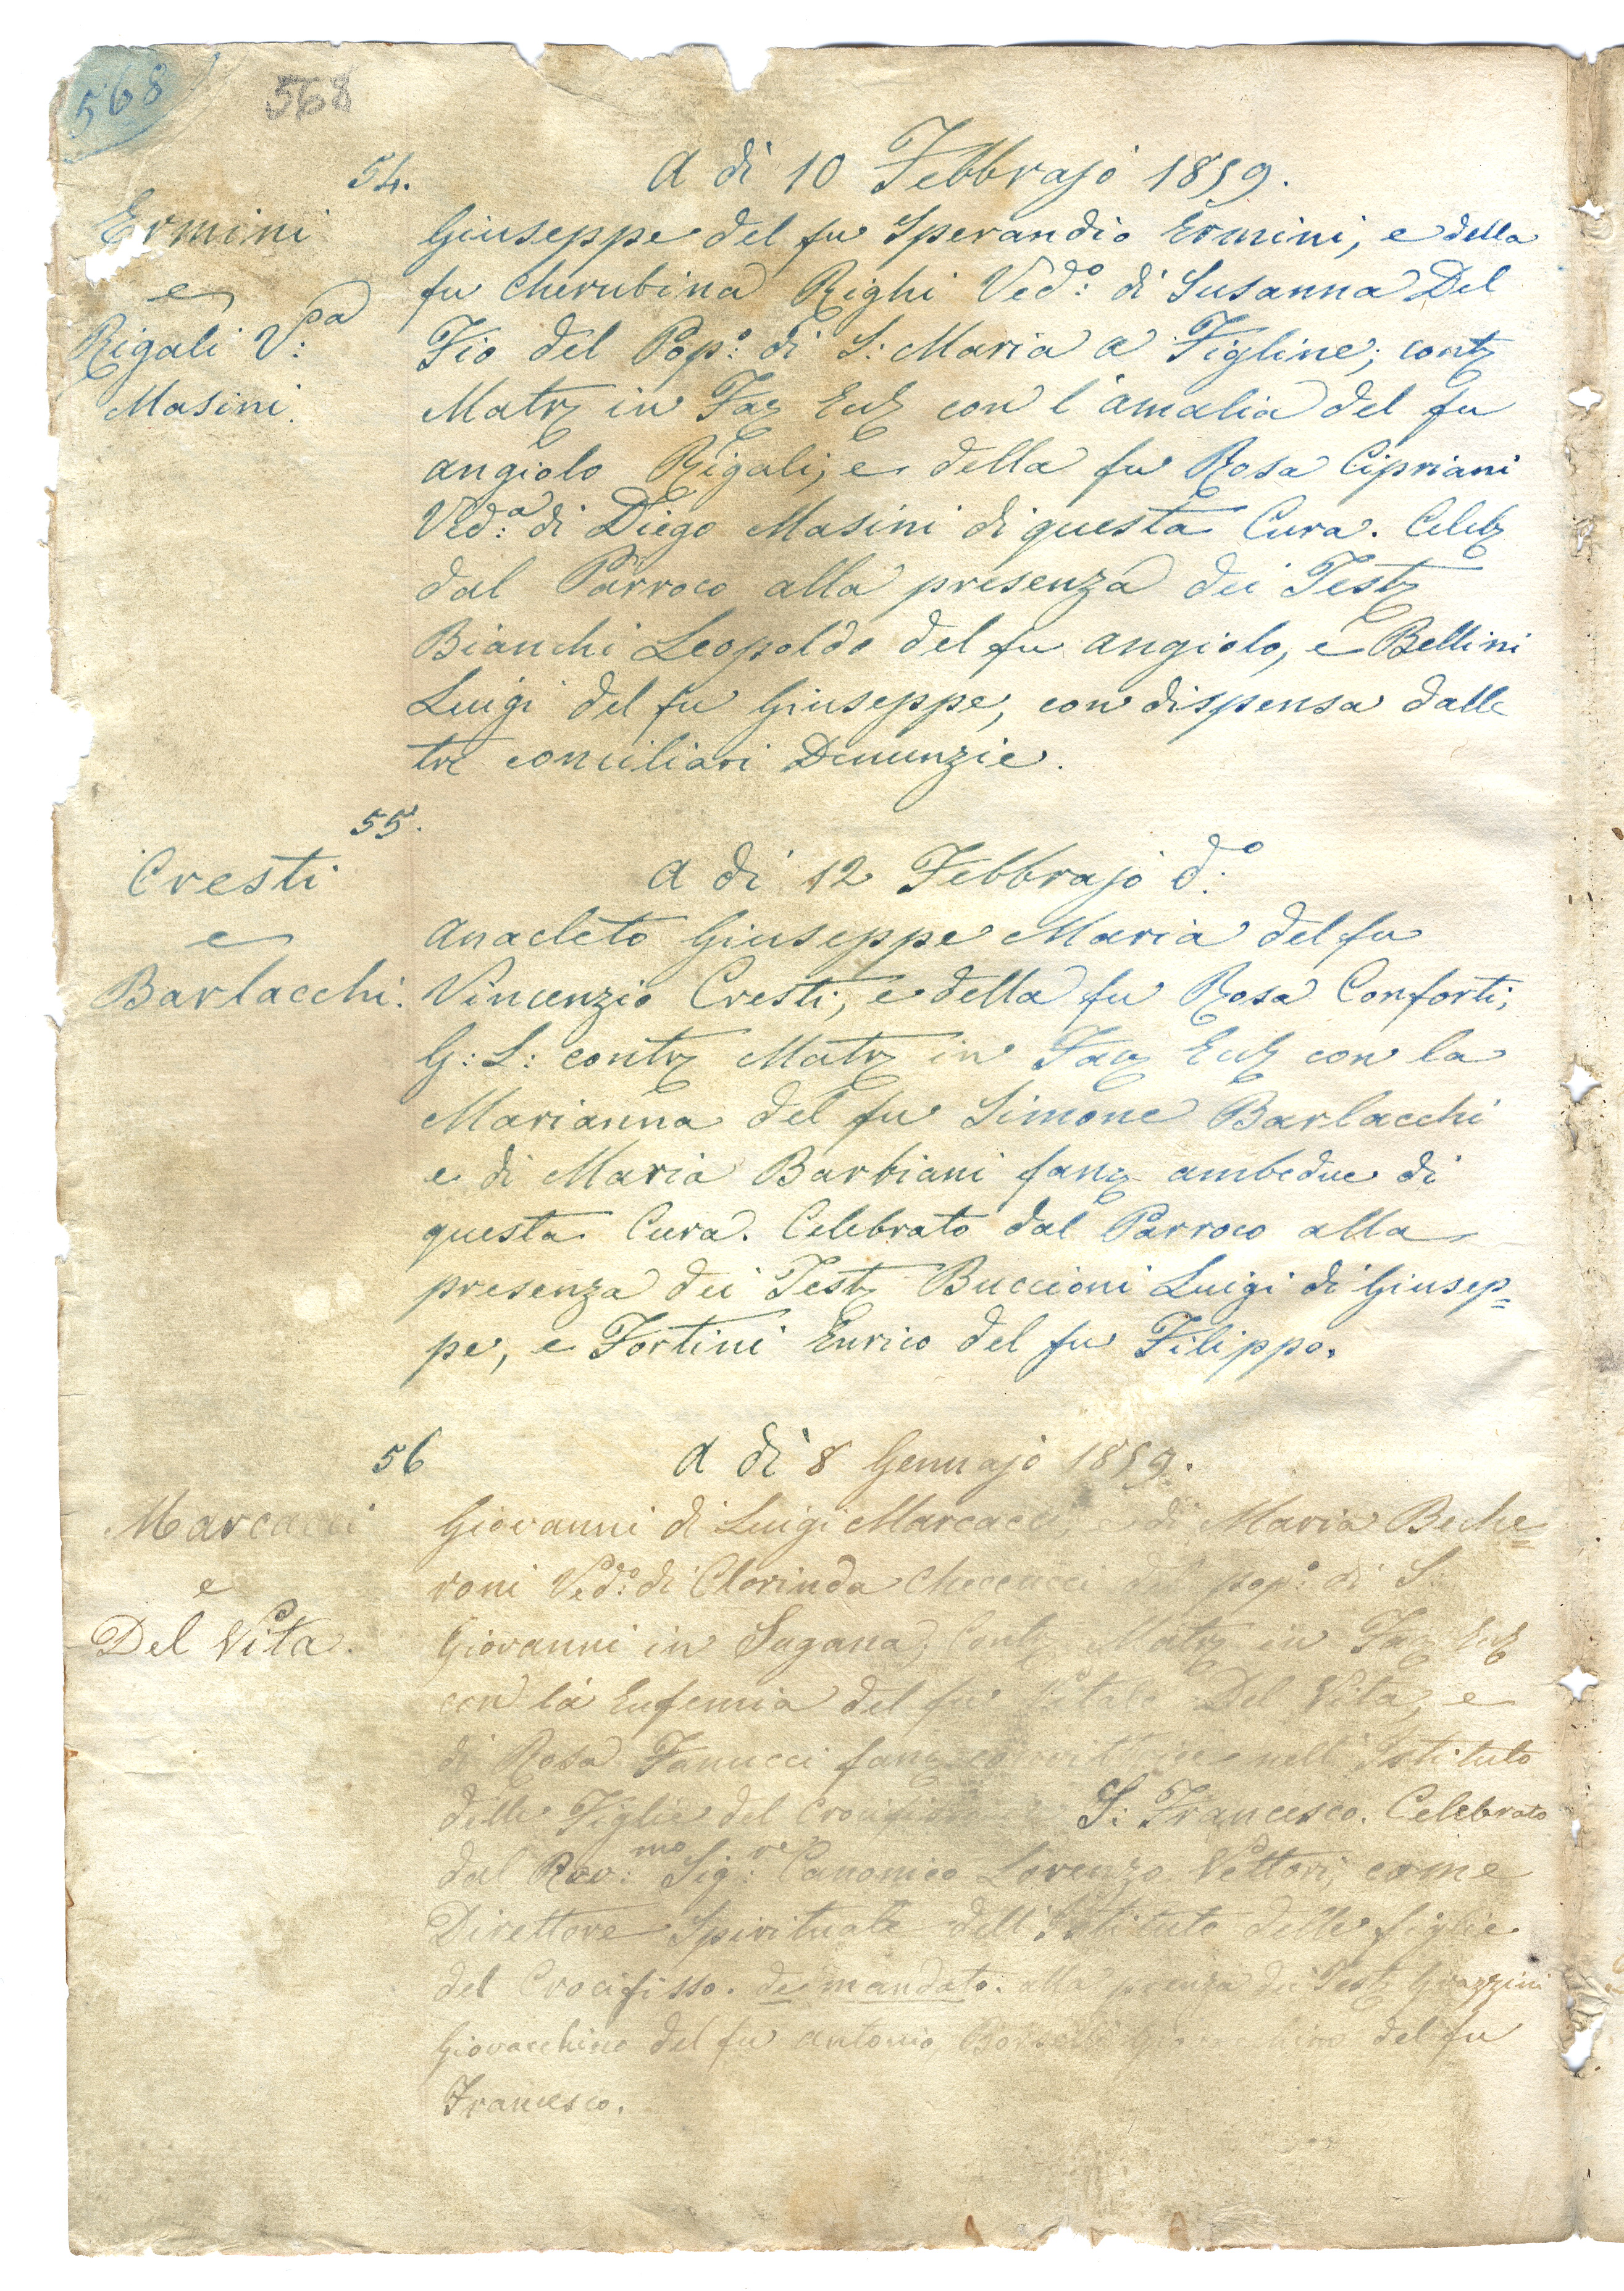 568
568
54.
A dì 10 Febbrajo 1859.
Ermini
e
Rigali V:pa
Masini.
Giuseppe del fu Sperandio Ermini, e della
fu Cherubina Righi Ved:o di Susanna Del
Fio del Pop:o di S: Maria a Figline; contz
Matrz in Faz Eccz con l'Amalia del fu
Angiolo Rigali, e della fu Rosa Cipriani
Ved:a di Diego Masini di questa Cura. Celebz
dal Parroco alla presenza dei Testz
Bianchi Leopoldo del fu Angiolo, e Bellini
Luigi del fu Giuseppe, con dispensa dalle
tre conciliari Denunzie.
55.
A dì 12 Febbrajo d:o
Cresti
e
Barlacchi.
Anacleto Giuseppe Maria del fu
Vincenzio Cresti, e della fu Rosa Conforti,
G: S: contrz Matrz in Faz Eccz con la
Marianna del fu Simone Barlacchi
e di Maria Barbiani fanz ambedue di
questa Cura. Celebrato dal Parroco alla
presenza dei Testz Buccioni Luigi di Giusep=
pe, e Fortini Enrico del fu Filippo.
56
A dì 8 Gennajo 1859.
Marcacci
e
Del Vita.
Giovanni di Luigi Marcacci, e di Maria Beche=
roni Ved:o di Clorinda Checcucci del pop:o di S:
Giovanni in Sugana, Contz Matrz in Faz Eccz
con la Eufemia del fu Vitale Del Vita, e
di Rosa Fanucci fanz convittrice nell'Istituto
delle Figlie del Crocifisso S: Francesco. Celebrato
dal Rev:mo Sig:re Canonico Lorenzo Vettori, come
Direttore Spirituale dell'Istituto delle figlie
del Crocifisso. de mandato. alla prenza dei Testz Grazzini
Giovacchino del fu Antonio, del fu
Francesco.